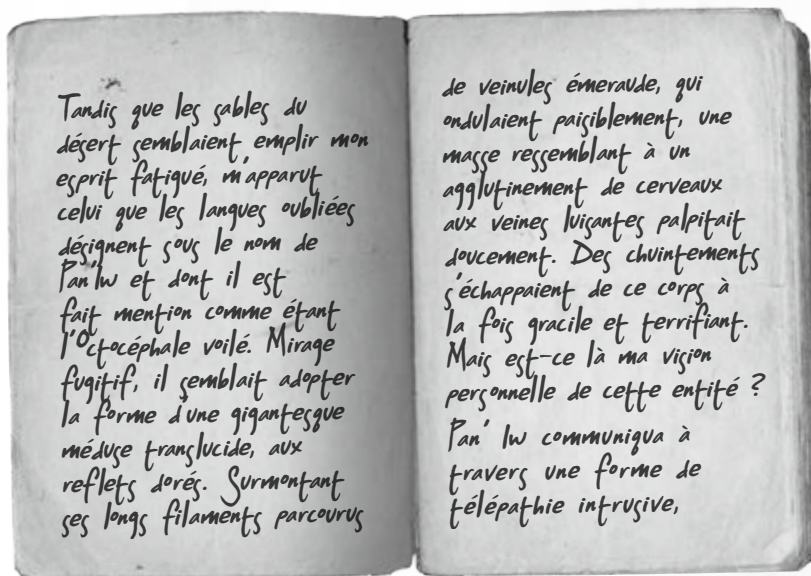 Tandis que les sables du
désert semblaient emplir mon
esprit fatigué, m'apparut
celui que les langues oubliées
désignent sous le nom de
Pan'lw et dont il est
fait mention comme étant
l'Octocéphale voilé. Mirage
fugitif, il semblait adopter
la forme d'une gigantesque
méduse translucide, aux
reflets dorés. Surmontant
ses longs filaments parcourus
de veinules émeraude, qui
ondulaient paisiblement, une
masse ressemblant à un
agglutinement de cerveaux
aux veines luisantes palpitait
doucement. Des chuintements
s'échappaient de ce corps à
la fois gracile et terrifiant.
Mais est-ce là ma vision
personnelle de cette entité ?
Pan' lw communiqua à
travers une forme de
télépathie intrusive,